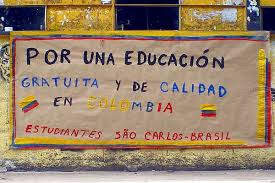 POR UNA EDUCACIÓN
GRATUITA Y DE CALIDAD
EN COLOMBIA
ESTUDIANTES SÃO CARLOS-BRASIL